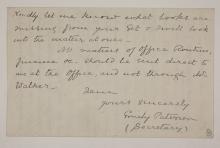 Kindly let me know what books are
missing from your set & I will look
into the matter at once.
All matters of Office Routine,
finance &c. should be sent direct to
me at the Office, and not through Mr
Walker.
yours sincerely
Emily Paterson
(Secretary)